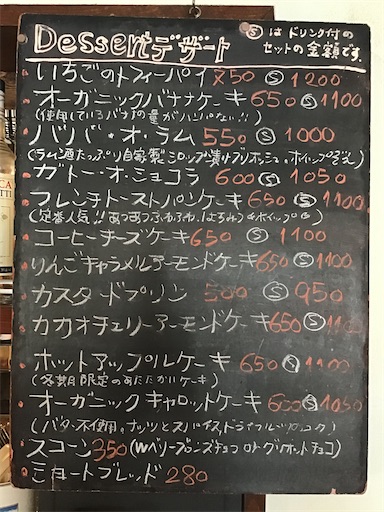 Dessert デザート
Ⓢ はドリンク付の
セットの金額です。
いちごのトフィーパイ 750 Ⓢ 1200
オーガニックバナナケーキ 650 Ⓢ 1100
(使用しているバナナの量がハンパない!!)
ババ・オ・ラム 550 Ⓢ 1000
(ラム酒たっぷり自家製シロップ漬けブリオッシュ、ホイップぞえ)
ガトー・オ・ショコラ 600 Ⓢ 1050
フレンチトーストパンケーキ 650 Ⓢ 1100
(定番人気!! あつあつふわふわ、はちみつ&ホイップ)
コーヒーチーズケーキ 650 Ⓢ 1100
りんごキャラメルアーモンドケーキ 650 Ⓢ 1100
カスタードプリン 500 Ⓢ 950
カカオチェリーアーモンドケーキ 650 Ⓢ 1100
ホットアップルケーキ 650 Ⓢ 1100
(冬期限定のあたたかいケーキ)
オーガニックキャロットケーキ 600 Ⓢ 1050
(バター不使用。ナッツとスパイス、ドライフルーツ)
スコーン 350 (Wベリー プルーンズチョコ ホットチョコ)
ショートブレッド 280